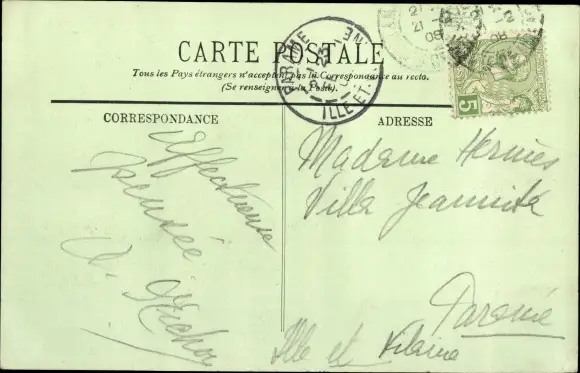 CARTE POSTALE
Tous les Pays étrangers n'acceptent pas la Correspondance au recto.
(Se renseigner à la Poste).
CORRESPONDANCE
ADRESSE
Affectueuse
pensée
Madame Hermès
Villa Jeannita
Paramé
Ille et Vilaine
PARAMÉ
ILLE-ET-
5